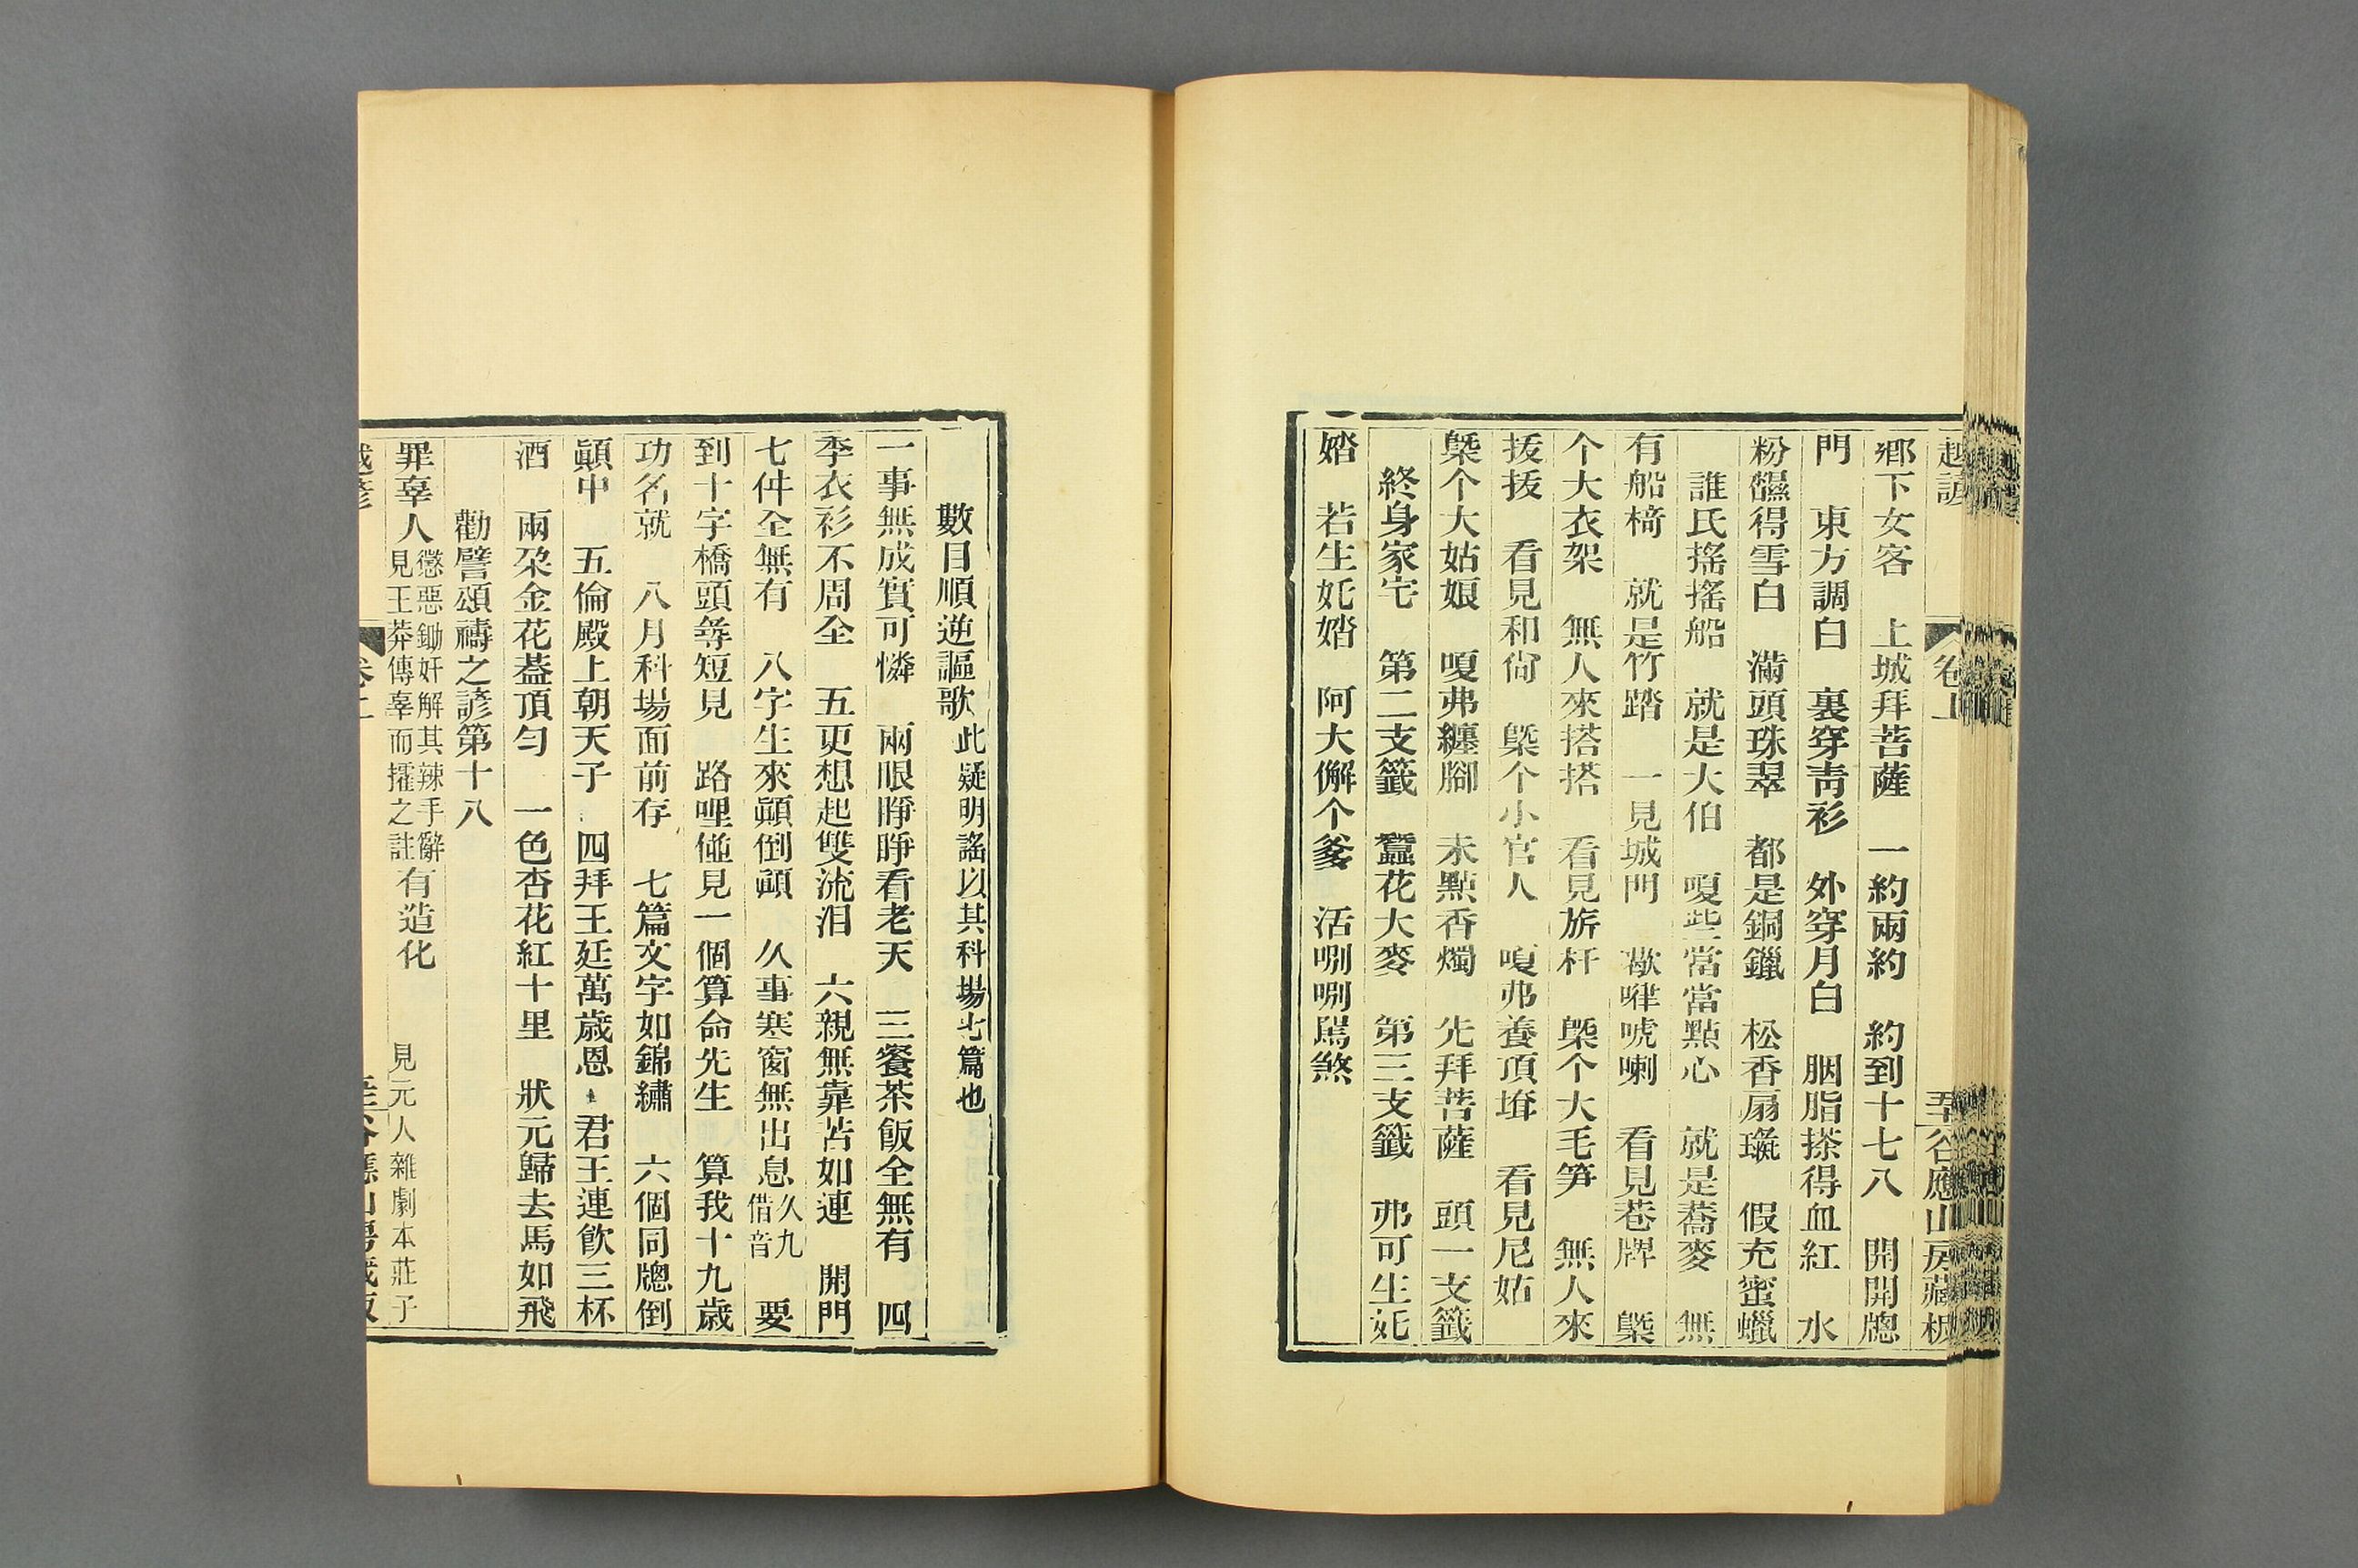 越諺 卷上 谷應山房藏板
鄉下女客　上城拜菩薩　一約兩約　約到十七八　開開牕
門　東方調白　裏穿靑衫　外穿月白　胭脂搽得血紅　水
粉得雪白　滿頭珠翠　都是銅鑞　松香扇墜　假充蜜蠟
誰氏搖搖船　就是大伯　嗄些當當點心　就是蕎麥　無
有船椅　就是竹踏　一見城門　唬喇　看見巷牌　槩
个大衣架　無人來搭搭　看見旂杆　槩个大毛笋　無人來
拔拔　看見和尙　槩个小官人　嗄弗養頂　看見尼姑
槩个大姑娘　嗄弗纏腳　未點香燭　先拜菩薩　頭一支籤
終身家宅　第二支籤　蠶花大麥　第三支籤　弗可生
　若生　阿大個爹　活煞
數目順逆謳歌此疑明謠以其科場七篇也
一事無成實可憐　兩眼睜睜看老天　三餐茶飯全無有　四
季衣衫不周全　五更想起雙流泪　六親無靠苦如連　開門
七件全無有　八字生來顚倒顚　久事寒窗無出息久九借音　要
到十字橋頭尋短見　路哩碰見一個算命先生　算我十九歲
功名就　八月科場面前存　七篇文字如錦繡　六個同牕倒
顚中　五倫殿上朝天子　四拜王廷萬歲恩　君王連飮三杯
酒　兩朶金花蓋頂勻　一色杏花紅十里　狀元歸去馬如飛
勸譬頌禱之諺第十八
罪辜人懲惡鋤奸解其辣手辭見王莽傳辜而攉之註有造化　見元人雜劇本莊子